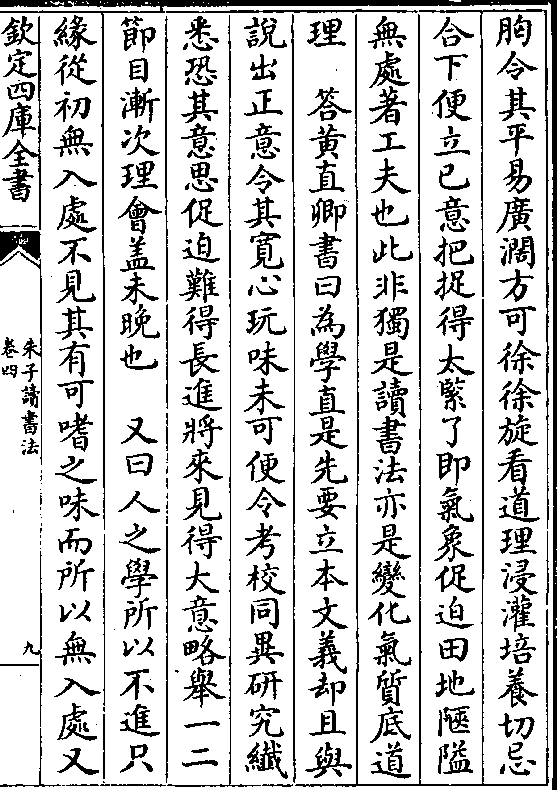 胸令其平易廣濶方可徐徐旋看道理浸灌培養切忌
合下便立已意把捉得太緊了即氣象促迫田地陿隘
無處著工夫也此非獨是讀書法亦是變化氣質底道
理　答黄直卿書曰為學直是先要立本文義却且與
說出正意令其寛心玩味未可便令考校同異研究纖
悉恐其意思促迫難得長進將來見得大意略舉一二
節目漸次理會盖未晚也　又曰人之學所以不進只
緣從初無入處不見其有可嗜之味而所以無入處又
欽定四庫全書
朱子讀書法
卷四
九